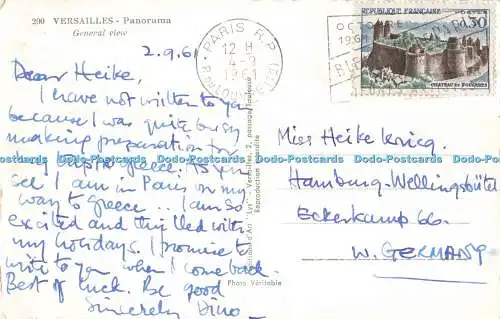 290 VERSAILLES - Panorama
General view
2.9.61
Dear Heike,
I have not written to you
because I was quite busy
making preparation for
my trip to Greece. As you
see I am in Paris in my
way to greece ... I am so
excited and thrilled with
my holidays. I promise to
write to you when I come back.
Best of luck. Be good
Sincerely Dino
PARIS R.P.
12 H
4-9
1961
R. DU LOUVRE
OCTOBRE
1961
PARIS
REPUBLIQUE FRANÇAISE
0,30
CHATEAU DE FOUGERES
Editions d'Art "Lys" - Versailles, 2, passage Toulouse
Reproduction interdite
Photo Véritable
Miss Heike
Hamburg-Wellingsbüttel
Eckerkamp 66.
W. GERMANY
Dodo-Postcards Dodo-Postcards Dodo-Postcards Dodo-Postcards Dodo-Postcards